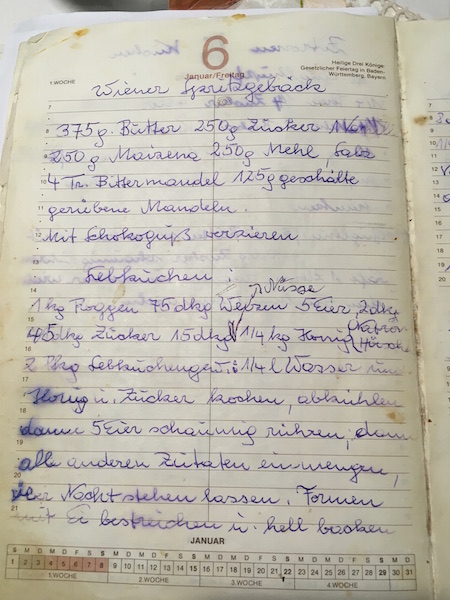 6
Januar/Freitag
1.WOCHE
Heilige Drei Könige
Gesetzlicher Feiertag in Baden-
Württemberg, Bayern
Wiener Spritzgebäck
375g Butter 250g Zucker
250g Maizena 250g Mehl, Salz
4 Tr. Bittermandel 125g geschälte
geriebene Mandeln.
Mit Schokoguß verzieren
Lebkuchen :
Nüsse
1 kg Roggen 75 dkg Weizen 5 Eier, 2 dkg
45 dkg Zücker 15 dkg 1/4 kg Honig (Natron
Hirsch
2 Pkg Lebkuchengew.: 1/4 l Wasser und
Honig u. Zucker kochen, abkühlen
dann 5 Eier schaumig rühren, dann
alle anderen Zutaten einmengen,
über Nacht stehen lassen. Formen
mit Ei bestreichen u. hell backen
JANUAR
S M D M D F S S M D M D F S S M D M D F S S M D M D F S S M D
1 2 3 4 5 6 7 8 9 10 11 12 13 14 15 16 17 18 19 20 21 22 23 24 25 26 27 28 29 30 31
1.WOCHE 2.WOCHE 3.WOCHE 4.WOCHE